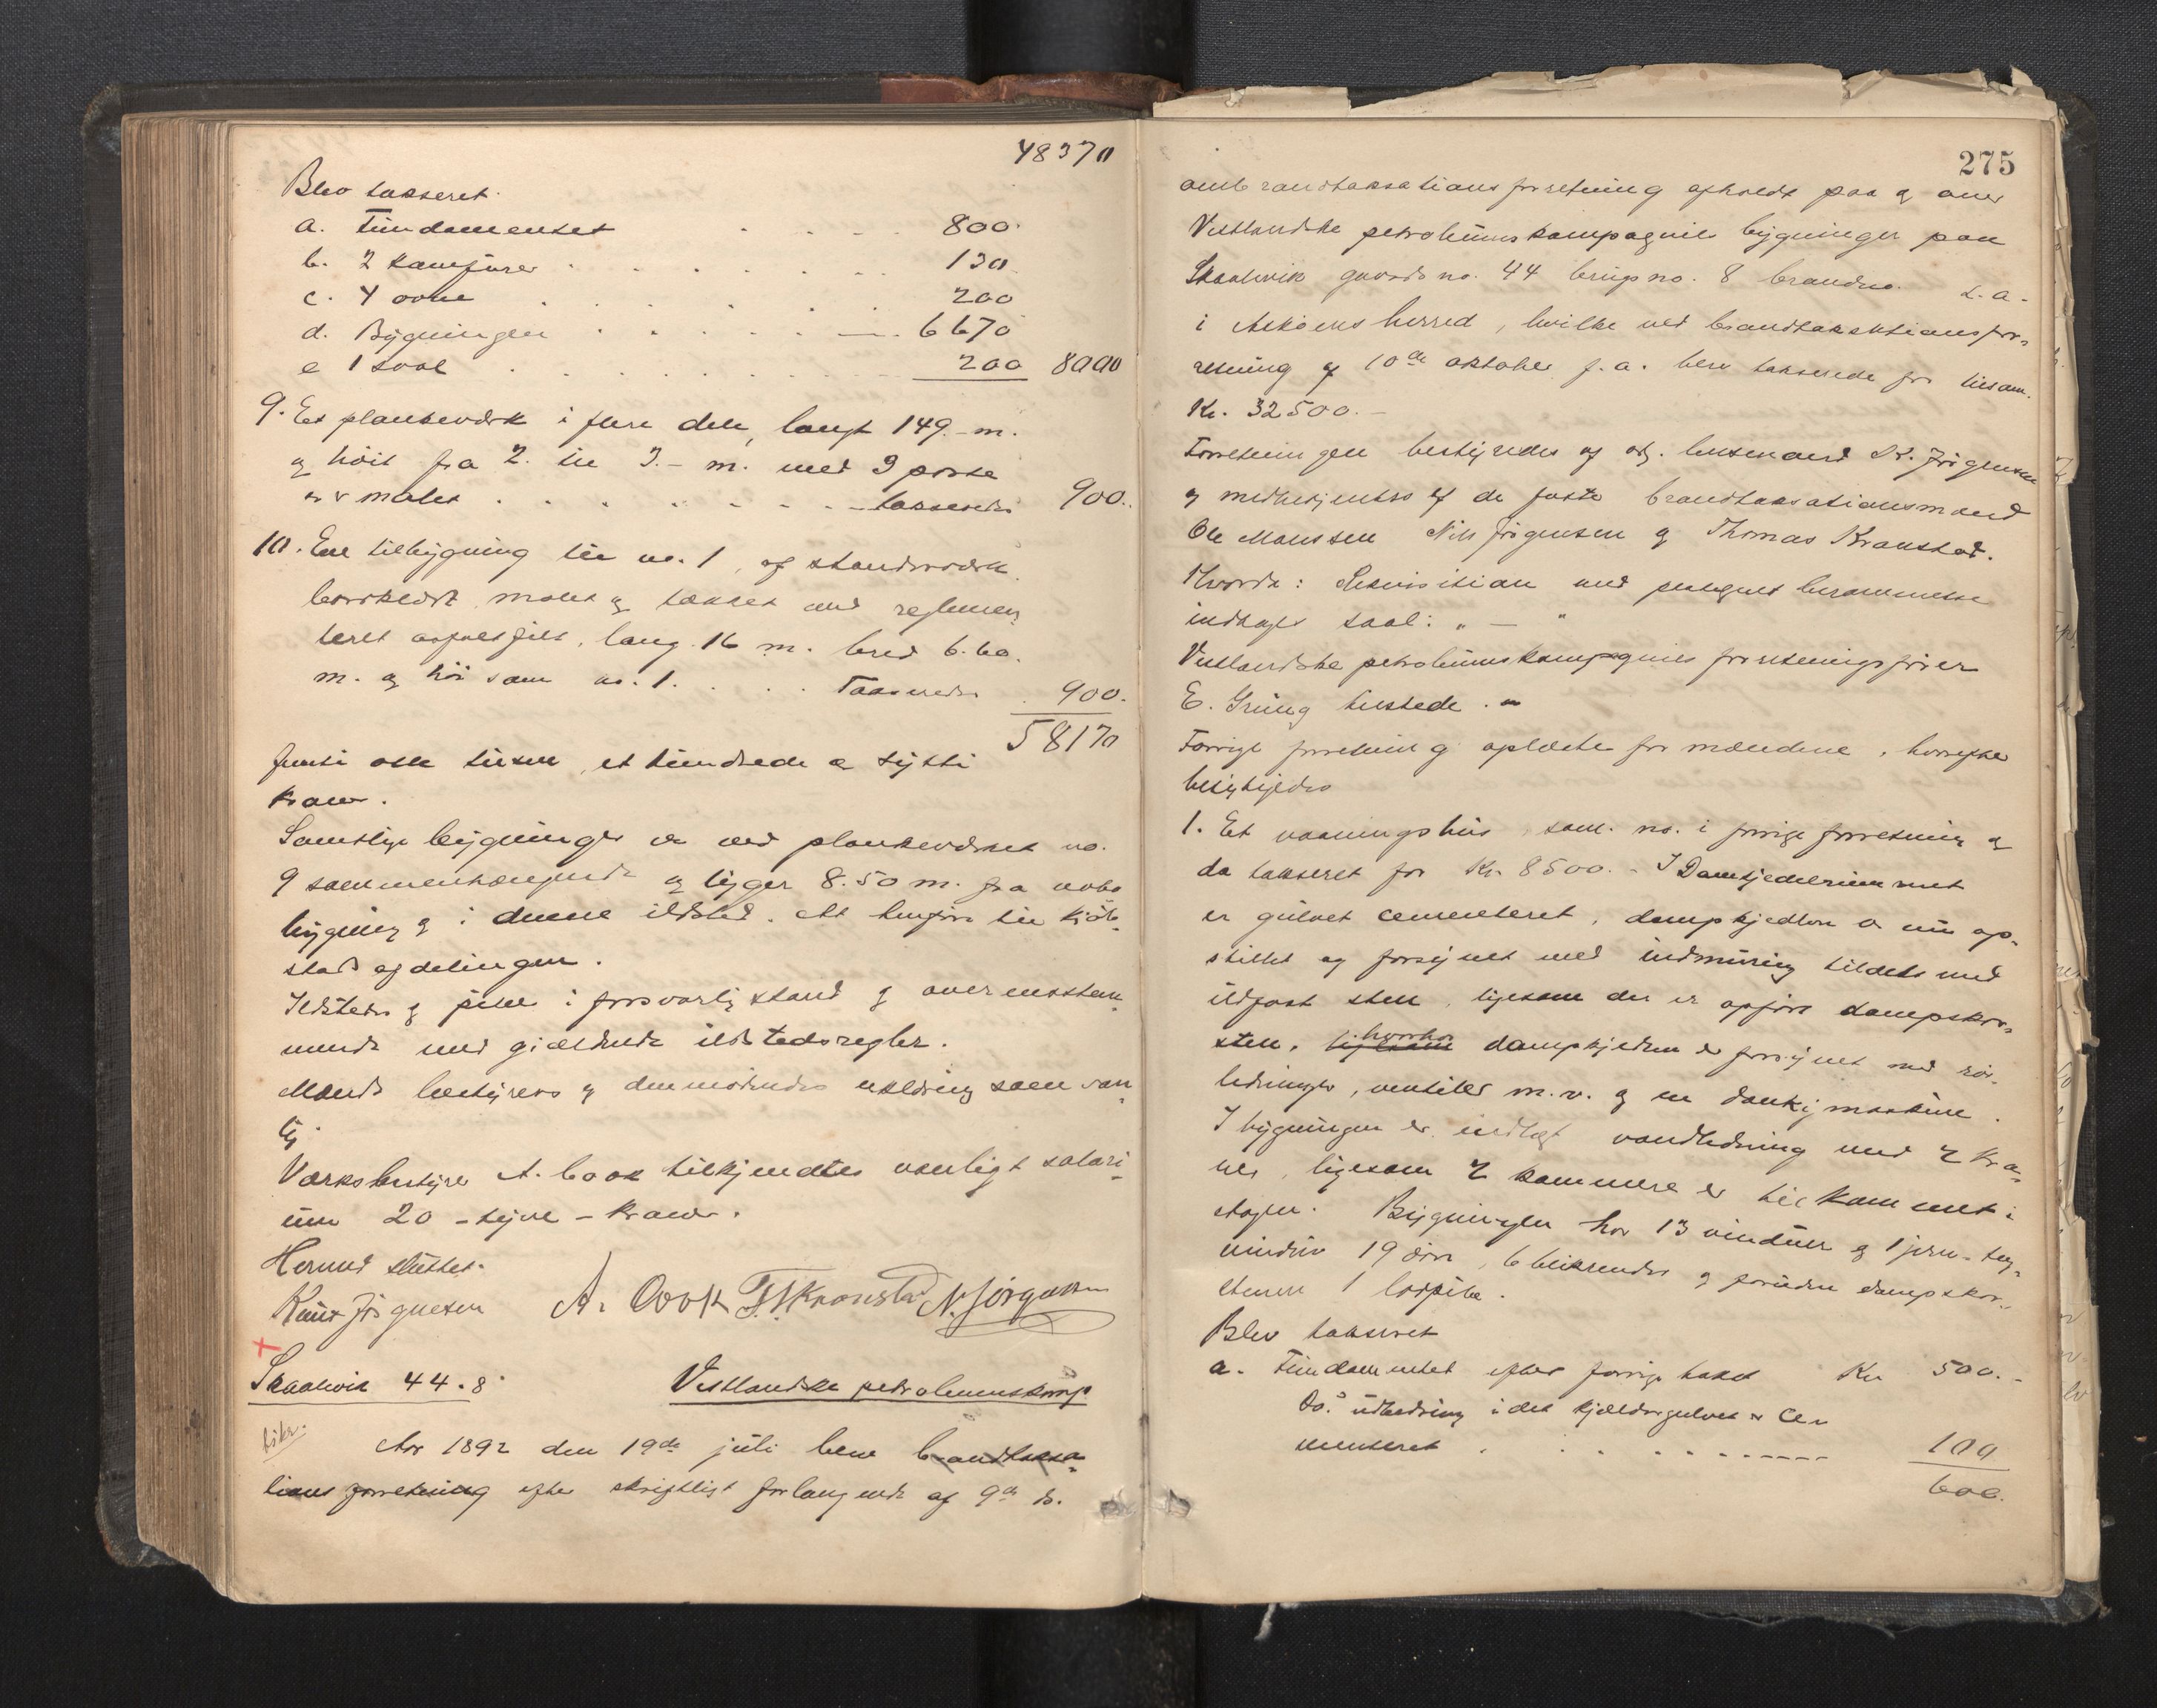 48370
Blev taxseret
a. Fundamentet . . . 800.
b. 2 kamfurer . . . 130
c. 4 ovne . . . 200
d. Bygningen . . . 6670
e 1 sval . . . 200 8000
9. Et plankeværk i flere dele, langt 149.- m.
og höit fra 2. til 3.- m. med 3 porte
er malet . . . taxseredes 900.
10. En tilbygning til no. 1, af standværk
bordklædt, malet og tækket med reglemen-
teret asfaltfilt, lang 16 m. bred 6.60.
m. og höi som no. 1. . . . Taxseredes 900.
58170
femti otte tusen, et hundrede og sytti
kroner.
Samtlige bygninger er ved plankeværket no.
9 sammenhængende og ligger 8.50 m. fra nabo
bygning og i denne ildsted. At henføre til kjöb-
stads afdelingen.
Ildsteder og piber i forsvarlig stand og overensstem-
mende med gjældende ildstedsregler.
Mænds bestyrers og den mödendes erklæring som van-
lig.
Værksbestyrer A. Cook tilkjendtes vanligt salari-
um 20 - tyve - kroner.
Hermed sluttet.
Knut Jörgensen A. Cook T. T. Kronstad N. Jörgensen
Skaalvik 44.8 Vestlandske petroleumskomp.
Aar 1892 den 19de juli blev brandtaxsa-
tions forretning efter skriftligt forlangende af 9de ds.
275
ombrandtaxsationsforretning afholdt paa og over
Vestlandske petroleumskompagnies bygninger paa
Skaalvik gaards no. 44 brugs no. 8 brandno. L. a.
i Askøens herred, hvilke ved brandtaxationsfor-
retning af 10de oktober f. a. blev taxserede for tilsam.
Kr. 32500.-
Forretningen bestyredes af adj. lensmand K. Jörgensen
og medbetjentes af de faste brandtaxsationsmænd
Ole Monssen Nils Jörgensen og Thomas Kronstad.
Hvorda: Rekvisition med paategnet berammelse
indtages saal: " — "
Vestlandske petroleumskompagnies forretningsförer
E. Grüng tilstede. -
Forrige forretning oplæstes for mændene, hvorefter
besigtigedes
1. Et vaaningshus, sam. no. i forrige forretning og
da taxseret for Kr. 8500.- I Damkjedelrummet
er gulvet cementeret, dampkjedlen er nu op-
stillet og forsynet med indmuring tildels med
ildfast sten, ligesom der er opfört dampskor-
sten, hvorhos dampkjedlen er forsynet med rör-
ledninger, ventiler m.v. og en donkymaskine.
I bygningen er indlagt vandledning med 2 kra-
ner, ligesom 2 kammere er tilkommet i
etagen. Bygningen har 13 vinduer og 1 jern-tag-
vindu 19 döre, 6 blikrender og foruden dampskor-
stenen 1 lodpibe.
Blev taxseret
a. Fundamentet efter forrige takst Kr 500.-
Do. udbedring i det kjeldergulvet er ce-
menteret . . . 100
600.